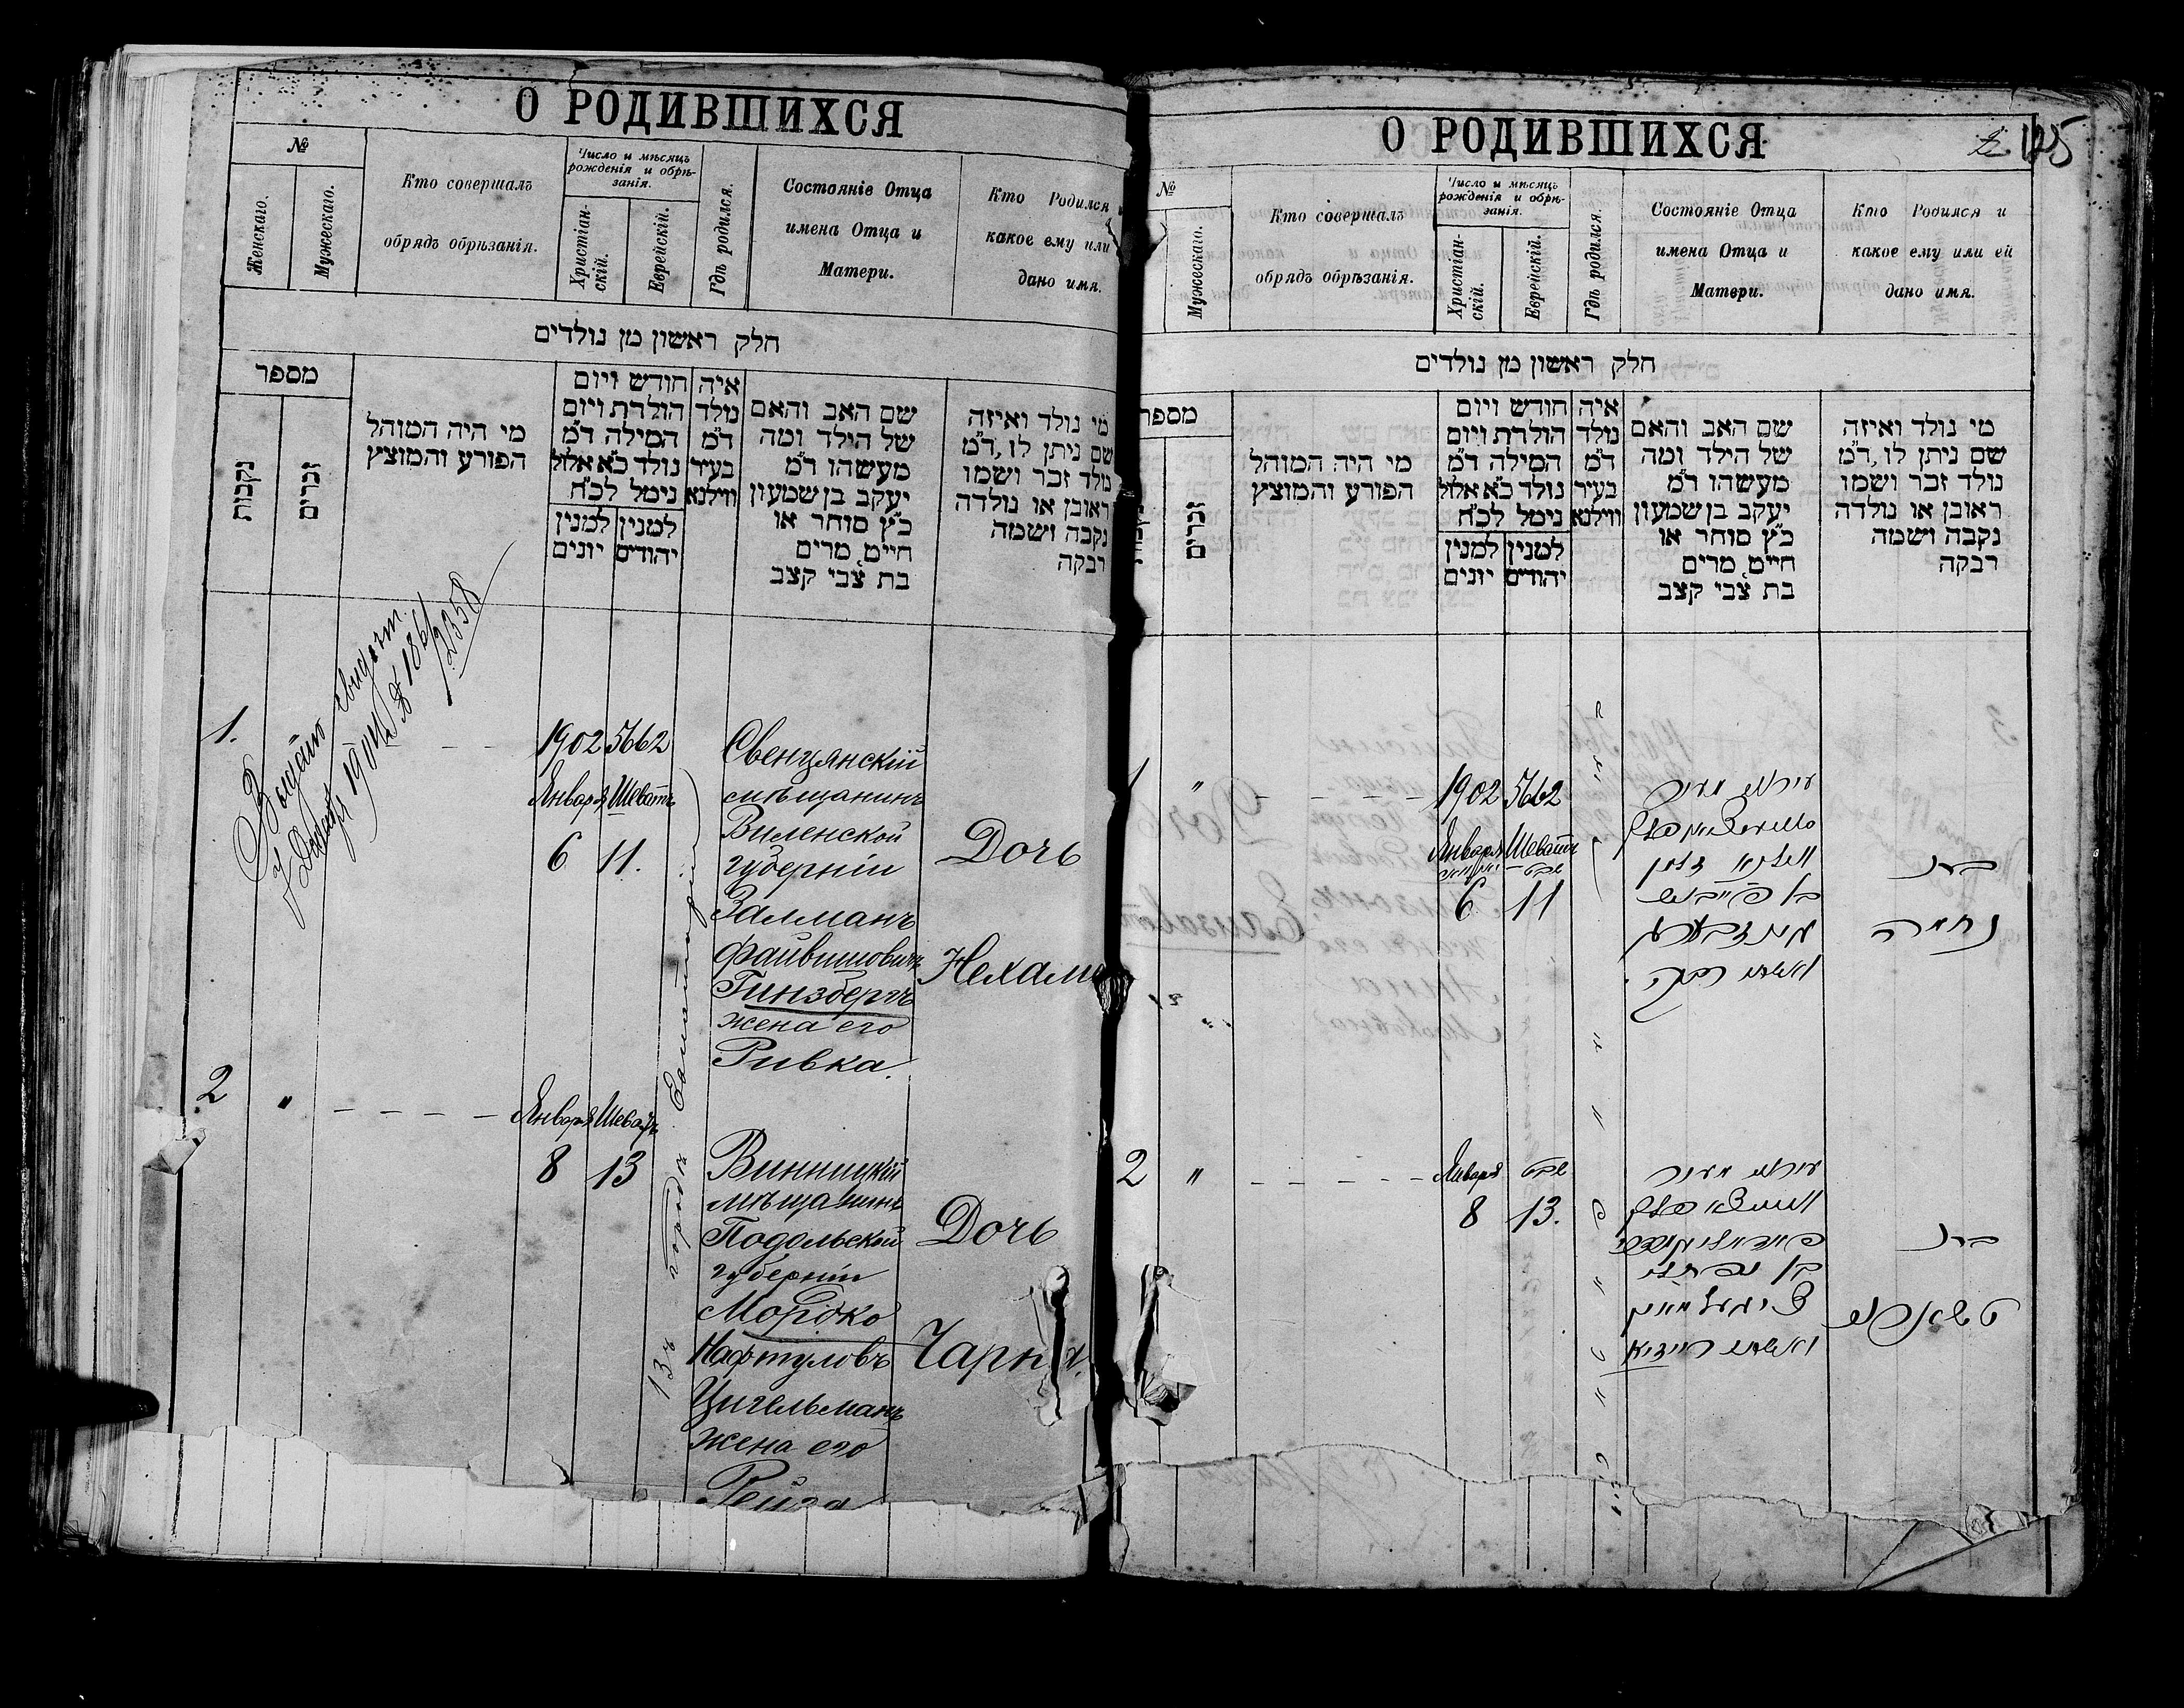 О РОДИВШИХСЯ
№
Женскаго.
Мужескаго.
Кто совершалъ
обрядъ обрѣзанія.
Число и мѣсяцъ
рожденія и обрѣ-
занія.
Христіан-
скій.
Еврейскій.
Гдѣ родился.
Состояніе Отца
имена Отца и
Матери.
Кто Родился и
какое ему или
дано имя.
חלק ראשון מן נולדים
מספר
נקבות
זכרים
מי היה המוהל
הפורע והמוצץ
חודש ויום
הולדת ויום
המילה ד״מ
נולד כ״א אלול
נימל לכ״ח
למנין
יהודים
למנין
יונים
איה
נולד
ד״מ
בעיר
ווילנא
שם האב והאם
של הילד ומה
מעשהו ד״מ
יעקב בן שמעון
כ״ץ סוחר או
חייט, מרים
בת צבי קצב
מי נולד ואיזה
שם ניתן לו, ד״מ
נולד זכר ושמו
ראובן או נולדה
נקבה ושמה
רבקה
1.
Выдано свидѣт.
7 Января 190
1902 5662
Января Шеватъ
6 11.
Свенцянскій
мѣщанинъ
Виленской
губерніи
Залманъ
Файвишовичъ
Гинзбергъ
жена его
Ривка.
Дочь
Нехама
2 " - - - -
Января Шеватъ
8 13
городъ
Винницкій
мѣщанинъ
Подольской
губерніи
Мордко
Нафтуловъ
Цигельманъ
жена его
Рейза
Дочь
Чарна.
О РОДИВШИХСЯ
125
№
Мужескаго.
Кто совершалъ
обрядъ обрѣзанія.
Число и мѣсяцъ
рожденія и обрѣ-
занія.
Христіан-
скій.
Еврейскій.
Гдѣ родился.
Состояніе Отца
имена Отца и
Матери.
Кто Родился и
какое ему или ей
дано имя.
חלק ראשון מן נולדים
מספר
זכרים
מי היה המוהל
הפורע והמוצץ
חודש ויום
הולדת ויום
המילה ד״מ
נולד כ״א אלול
נימל לכ״ח
למנין
יהודים
למנין
יונים
איה
נולד
ד״מ
בעיר
ווילנא
שם האב והאם
של הילד ומה
מעשהו ד״מ
יעקב בן שמעון
כ״ץ סוחר או
חייט, מרים
בת צבי קצב
מי נולד ואיזה
שם ניתן לו, ד״מ
נולד זכר ושמו
ראובן או נולדה
נקבה ושמה
רבקה
1 " - - - -
1902 5662
Января Шеватъ
שבט
6 11
עירוני מעיר
ווילנא זלמן
בן פייבוש
גינזבערג
ואשתו רבקה.
ברת
נחמה
2 " - - - -
Января שבט
8 13.
עירוני מעיר
בן נפתלי
ציגעלמאן
ואשתו רייזא
ברת
טשארנא